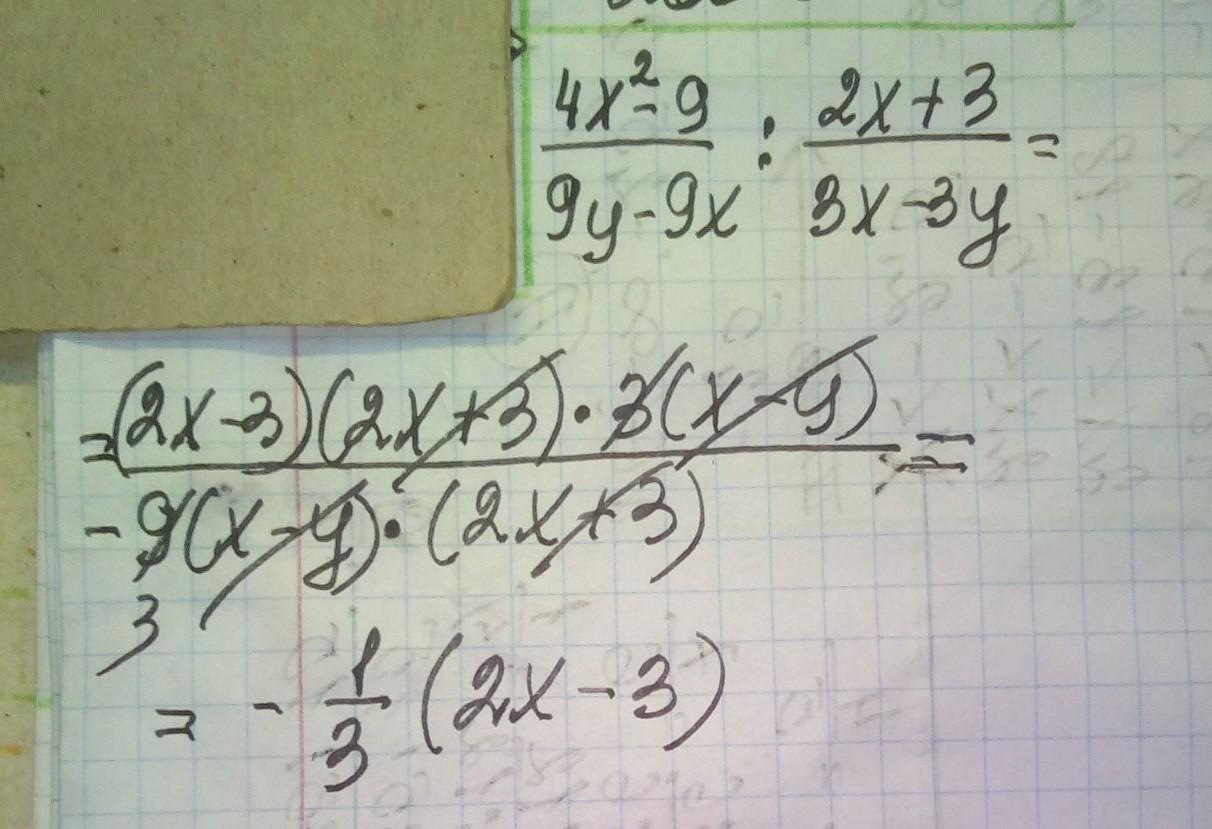 4x²-9 : 2x+3 =
9y-9x 3x-3y
=(2x-3)(2x+3)·3(x-y) =
-9(x-y)·(2x+3)
3
= - 1/3 (2x-3)